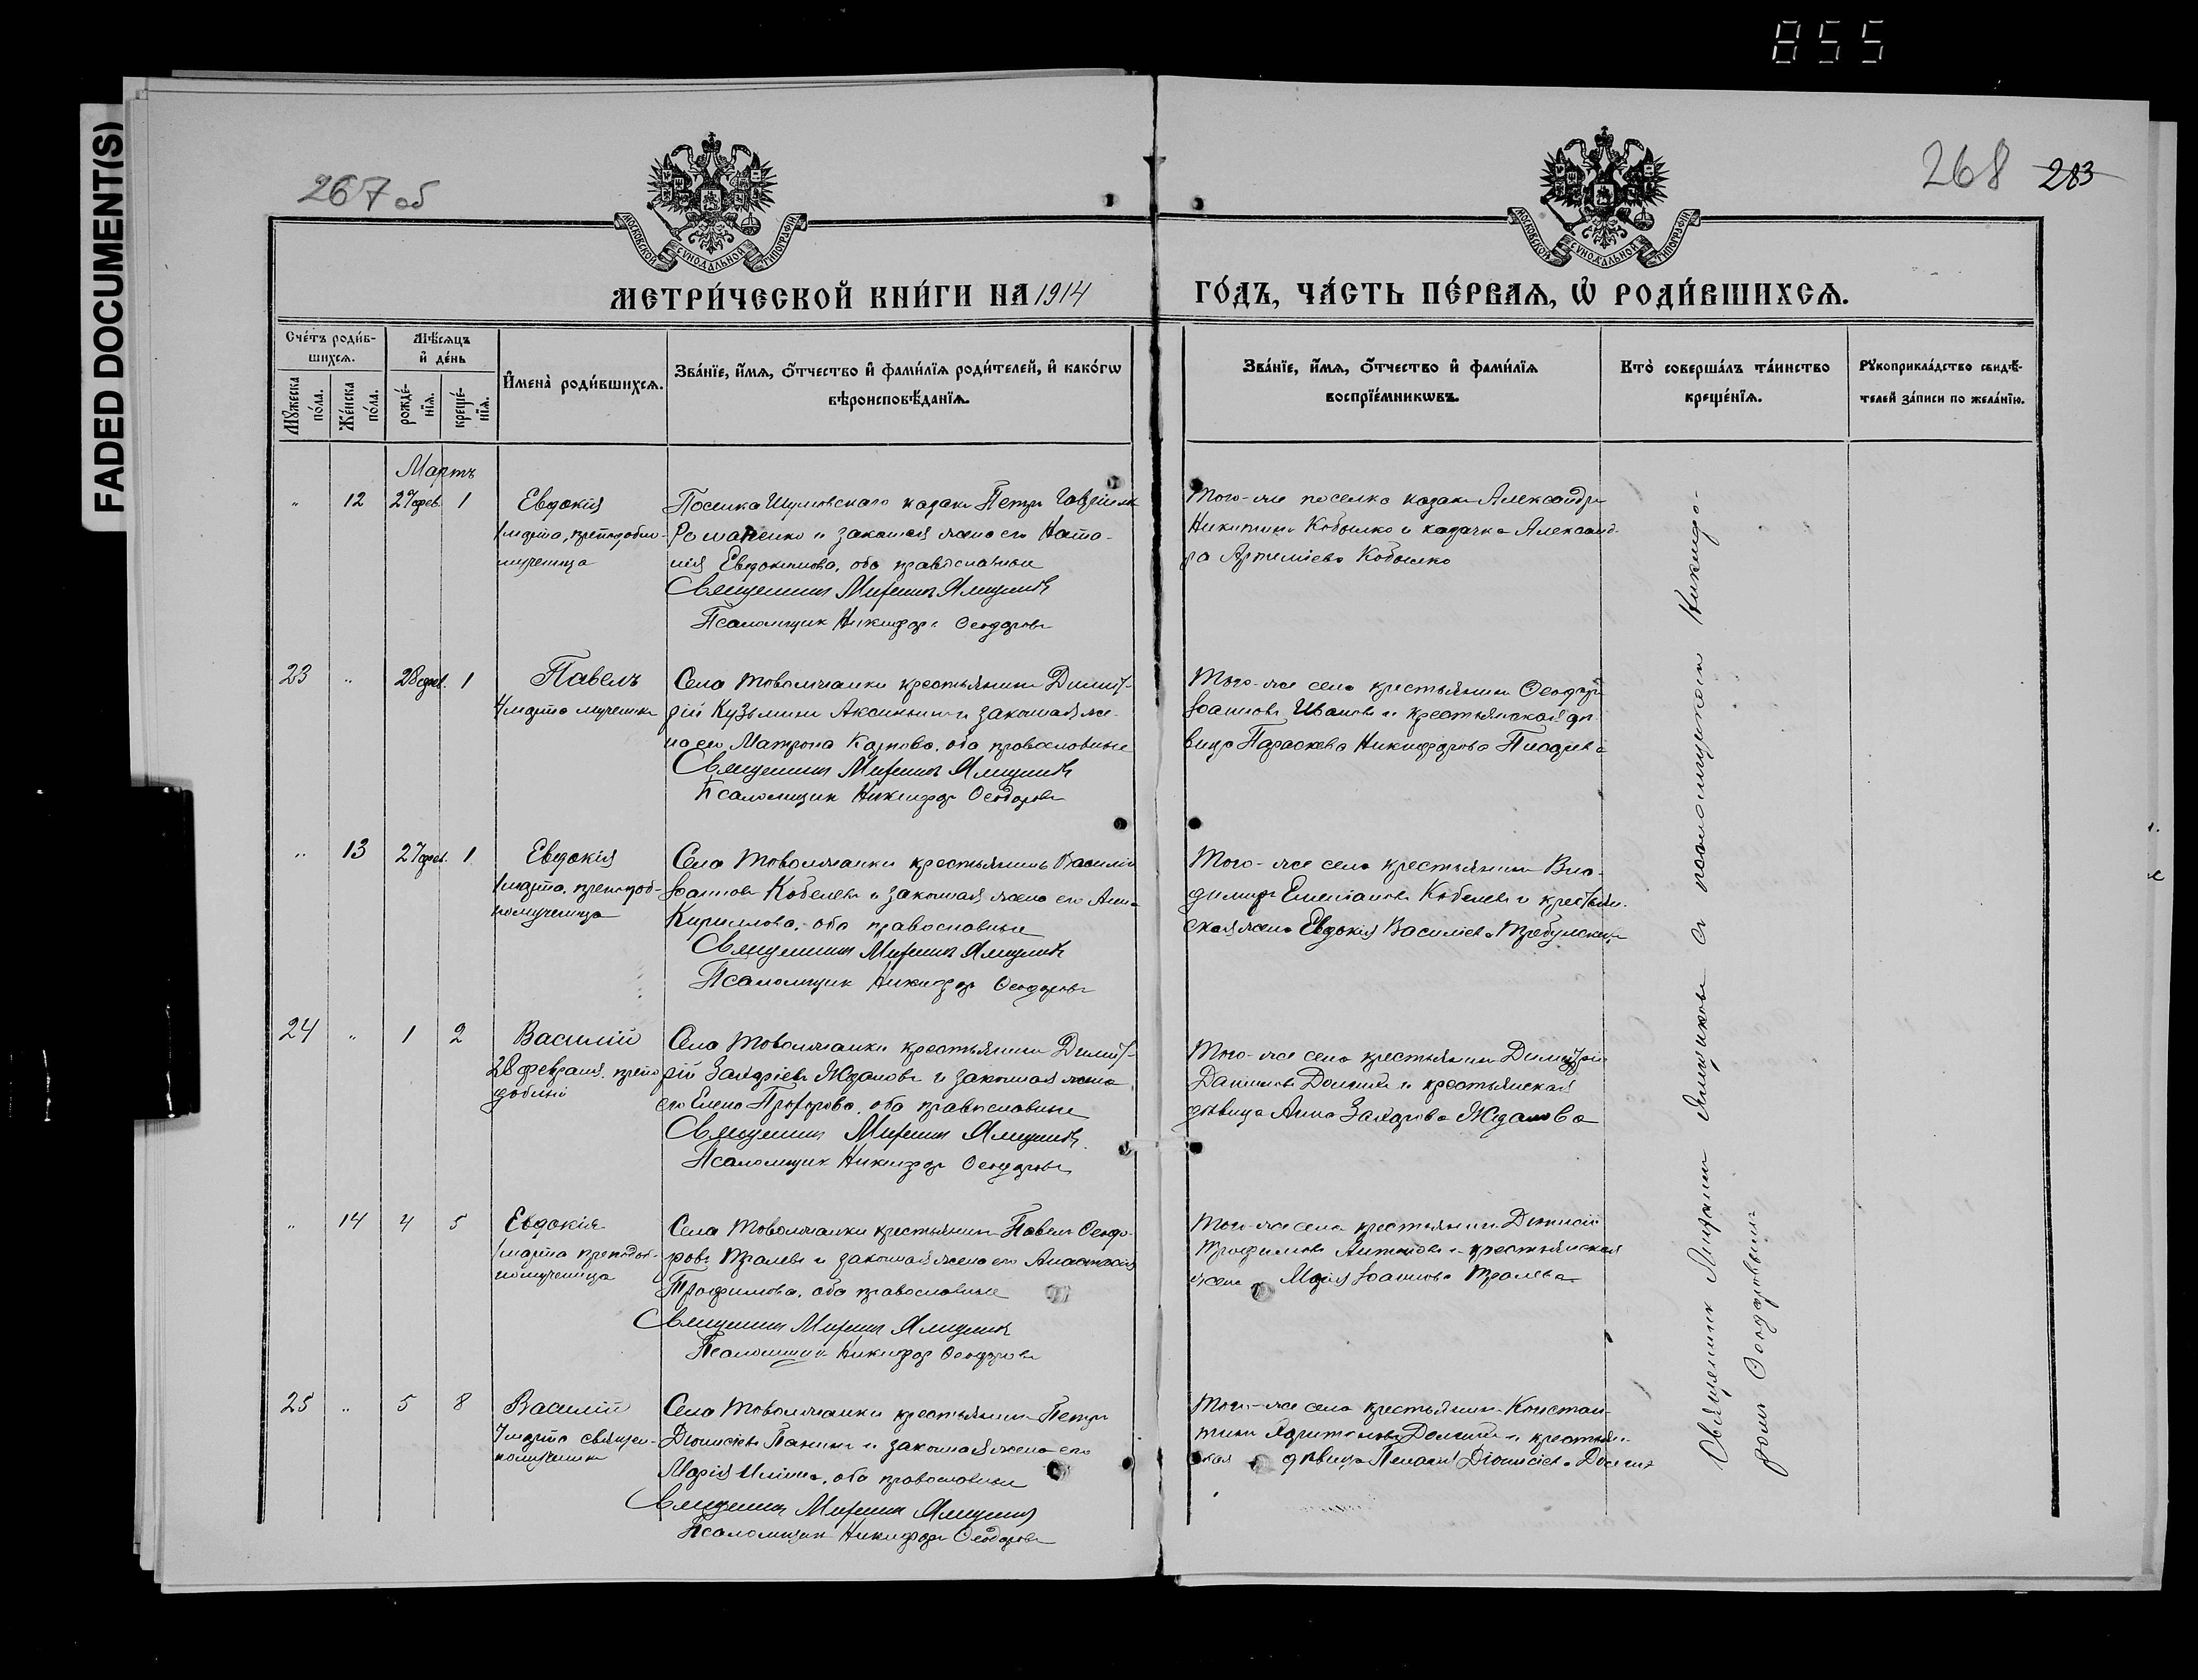 855
FADED DOCUMENT(S)
267 об
268 283
МОСКОВСКОЙ СѴНОДАЛЬНОЙ ТИПОГРАФІИ
МОСКОВСКОЙ СѴНОДАЛЬНОЙ ТИПОГРАФІИ
МЕТРИ́ЧЕСКОЙ КНИ́ГИ НА 1914
ГО́ДЪ, ЧА́СТЬ ПЕ́РВАѦ, Ѡ҆ РОДИ́ВШИХСѦ.
Сче́тъ роди́в-
шихсѧ.
Мꙋ́жеска по́ла.
Же́нска по́ла.
Мѣ́сѧцъ
и҆ де́нь
рожде́-
нїѧ.
креще́-
нїѧ.
И҆мена̀ роди́вшихсѧ.
Зва́нїе, и҆́мѧ, ѻ҆́тчество и҆ фами́лїѧ роди́телей, и҆ како́гѡ
вѣроисповѣ́данїѧ.
Зва́нїе, и҆́мѧ, ѻ҆́тчество и҆ фами́лїѧ
воспрїе́мникѡвъ.
Кто̀ соверша́лъ та́инство
креще́нїѧ.
Рꙋкоприкла́дство свидѣ́-
телей за́писи по жела́нїю.
Мартъ
" 12 27 фев. 1 Евдокія
1 марта, преподобно-
мученица
Поселка Шумовскаго казакъ Петръ Гавріиловъ
Романенко и законная жена его Ната-
лія Евдокимова, оба православные
Священникъ Миронъ Ямщиковъ
Псаломщикъ Никифоръ Ѳеодоровъ
Того-же поселка казакъ Александръ
Никитинъ Кобылко и казачка Александ-
ра Артеміева Кобылко
23 " 28 фев. 1 Павелъ
4 марта мученикъ
Села Товолжанки крестьянинъ Димит-
рій Кузьминъ Аксининъ и законная же-
на его Матрона Карпова, оба православные
Священникъ Миронъ Ямщиковъ
Псаломщикъ Никифоръ Ѳеодоровъ
Того-же села крестьянинъ Ѳеодоръ
Іоанновъ Ивановъ и крестьянская дѣ-
вица Параскева Никифорова Писарева
" 13 27 фев. 1 Евдокія
1 марта, преподоб-
номученица
Села Товолжанки крестьянинъ Василій
Іоанновъ Кобелевъ и законная жена его Анна
Кириллова, оба православные
Священникъ Миронъ Ямщиковъ
Псаломщикъ Никифоръ Ѳеодоровъ
Того-же села крестьянинъ Вла-
димиръ Емеліановъ Кобелевъ и крестьян-
ская жена Евдокія Василіева
24 " 1 2 Василій
28 февраля, препо-
добный
Села Товолжанки крестьянинъ Димит-
рій Захаріевъ Ждановъ и законная жена
его Елена Прохорова, оба православные
Священникъ Миронъ Ямщиковъ
Псаломщикъ Никифоръ Ѳеодоровъ
Того-же села крестьянинъ Димитрій
Даниловъ и крестьянская
дѣвица Анна Захарова Жданова
" 14 4 5 Евдокія
1 марта преподоб-
номученица
Села Товолжанки крестьянинъ Павелъ Ѳеодо-
ровъ и законная жена его Анастасія
Трофимова, оба православные
Священникъ Миронъ Ямщиковъ
Псаломщикъ Никифоръ Ѳеодоровъ
Того-же села крестьянинъ Діонисій
Трофимовъ Антоновъ и крестьянская
жена Марія Іоаннова
25 " 5 8 Василій
7 марта священ-
номученикъ
Села Товолжанки крестьянинъ Петръ
Діонисіевъ Панинъ и законная жена его
Марія Ильина, оба православные
Священникъ Миронъ Ямщиковъ
Псаломщикъ Никифоръ Ѳеодоровъ
Того-же села крестьянинъ Констан-
тинъ Харитоновъ и крестьян-
ская дѣвица Пелагія Діонисіева
Священникъ Миронъ Ямщиковъ съ псаломщикомъ Никифо-
ромъ Ѳеодоровымъ